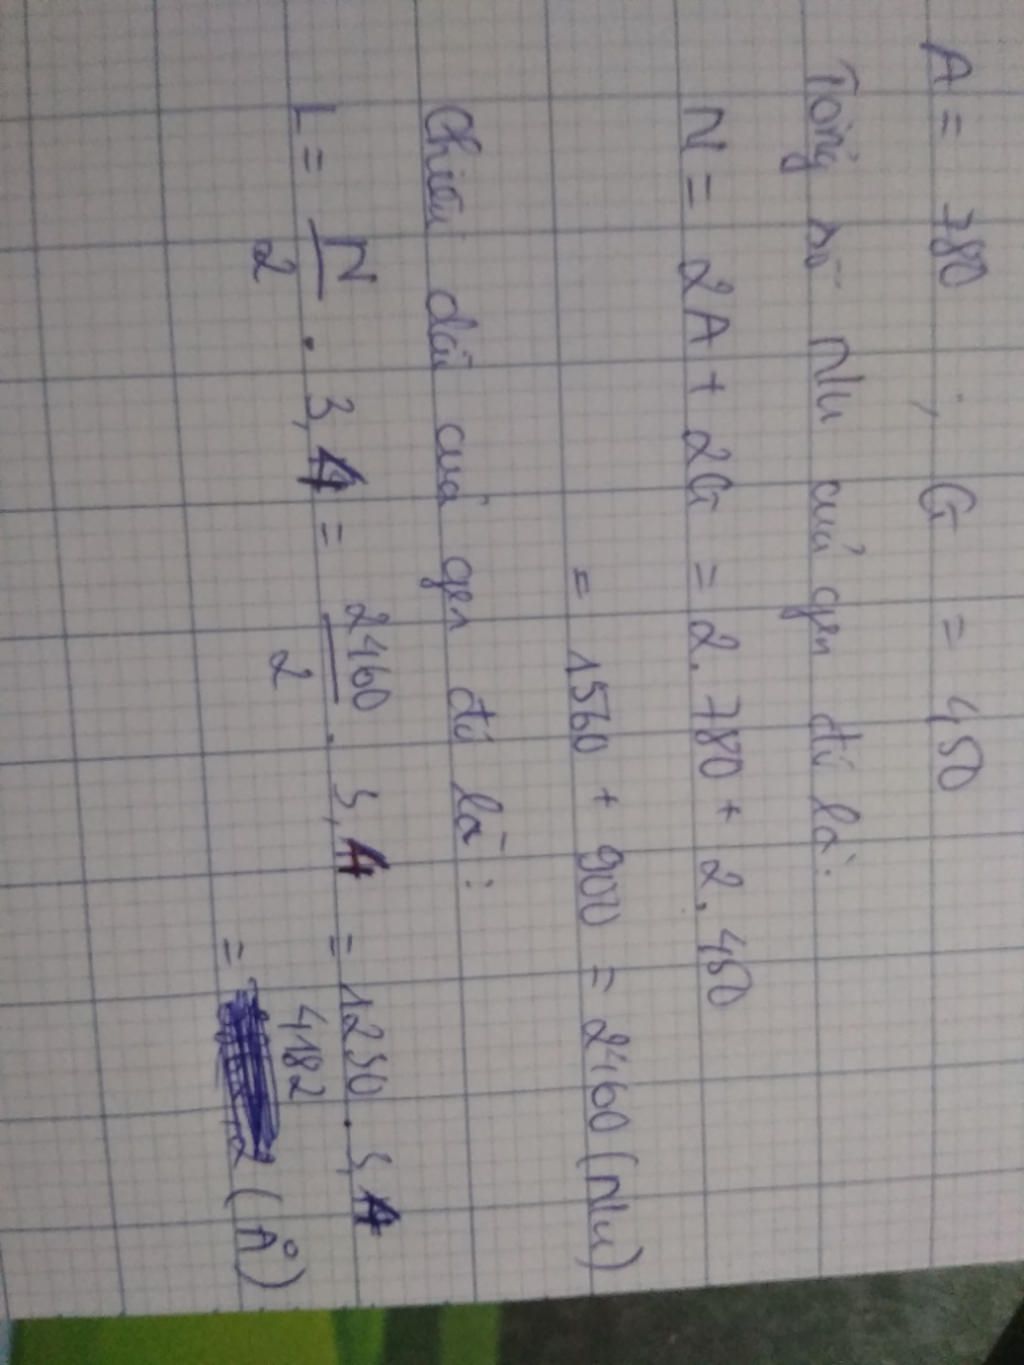 A = 780 ; G = 450
Tổng số nlu của gen đó là:
N = 2A + 2G = 2.780 + 2.450
= 1560 + 900 = 2460 (nlu)
Chiều dài của gen đó là:
L = N/2 . 3,4 = 2460/2 . 3,4 = 1230 . 3,4
= 4182 (A°)